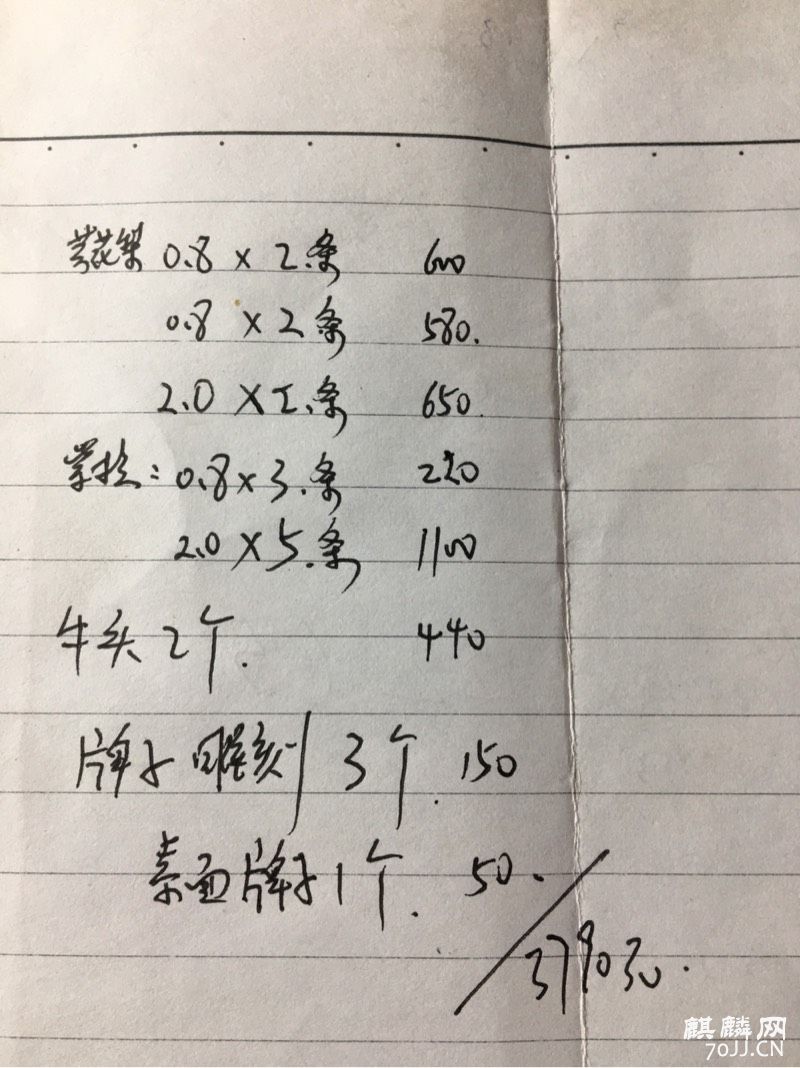 黄花梨 0.8 × 2.条 600
0.8 × 2条 580.
2.0 × 2.条 650.
紫檀: 0.8 × 3.条 220
2.0 × 5.条 1100
牛头 2个. 440
牌子雕刻 3个. 150
素面牌子 1个. 50.
3790元.
麒麟网
70JJ.CN